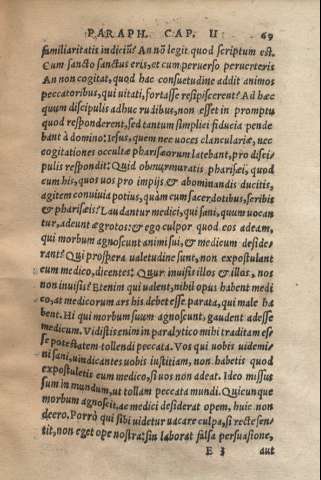 PARAPH. CAP. II 69
familiaritatis indiciũ? An nõ legit quod scriptum est.
Cum sancto sanctus eris, et cum peruerso peruerteris
An non cogitat, quòd hac consuetudine addit animos
peccatoribus, qui uitati, fortasse resipiscerent? Ad hæc
quum discipulis adhuc rudibus, non esset in promptu
quod responderent, sed tantum simplici fiducia pende
bant à domino: Iesus, quem nec uoces clanculariæ, nec
cogitationes occultæ pharisæorum latebant, pro disci-
pulis respondit: Quid obmurmuratis pharisæi, quod
cum his, quos uos pro impijs & abominandis ducitis,
agitem conuiuia potius, quàm cum sacerdotibus, scribis
& pharisæis? Laudantur medici, qui sani, quum uocan
tur, adeunt ægrotos: & ego culpor quod eos adeam,
qui morbum agnoscunt animi sui, & medicum deside
rant? Qui prospera ualetudine sunt, non expostulant
cum medico, dicentes: Quur inuisis illos & illos, nos
non inuisis? Etenim qui ualent, nihil opus habent medi
co, at medicorum ars his debet esse parata, qui male ha
bent. Hi qui morbum suum agnoscunt, gaudent adesse
medicum. Vidistis enim in paralytico mihi traditam es
se potestatem tollendi peccata. Vos qui uobis uidemi-
ni sani, uindicantes uobis iustitiam, non habetis quod
expostuletis cum medico, si uos non adeat. Ideo missus
sum in mundum, ut tollam peccata mundi. Quicunque
morbum agnoscit, ac medici desiderat opem, huic non
deero. Porrò qui sibi uidetur uacare culpa, si recte sen-
tit, non eget ope nostra: sin laborat falsa persuasione,
E 3 aut